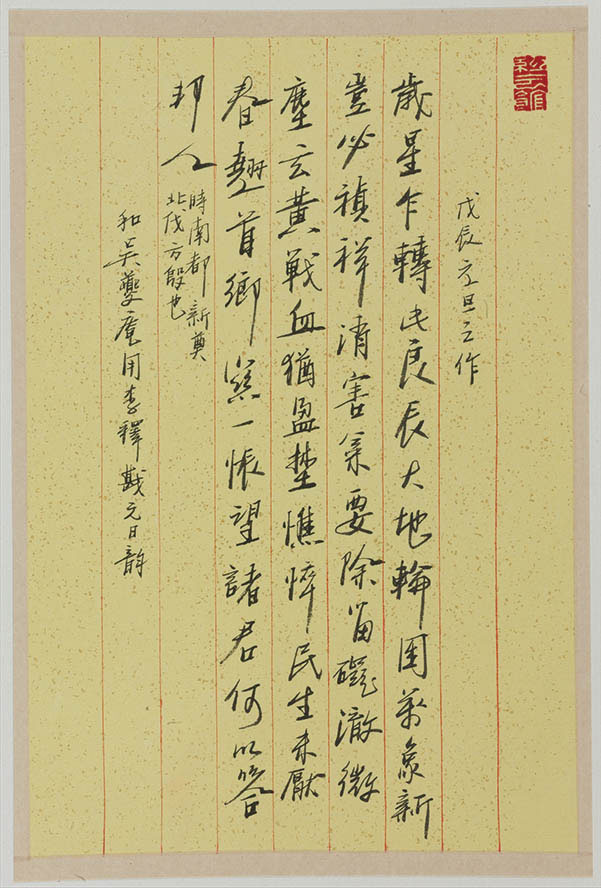 戊辰元旦之作
歲星乍轉此良辰大地輪囷萬象新
豈必禎祥消害氣要除留礙澈微
塵玄黃戰血猶盈埜憔悴民生未厭
春翹首鄉一悵望諸君何以答
邦人
時南都新奠
北伐方殷也
和吳夔庵用李釋戡元日韻